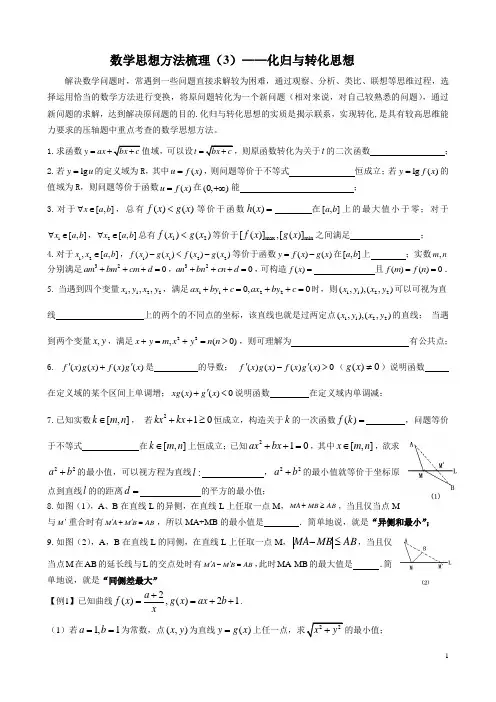 数学思想方法梳理（3）——化归与转化思想
解决数学问题时，常遇到一些问题直接求解较为困难，通过观察、分析、类比、联想等思维过程，选
择运用恰当的数学方法进行变换，将原问题转化为一个新问题（相对来说，对自己较熟悉的问题），通过
新问题的求解，达到解决原问题的目的.化归与转化思想的实质是揭示联系，实现转化,是具有较高思维能
力要求的压轴题中重点考查的数学思想方法。
1.求函数y=ax+√bx+c值域，可以设t=√bx+c，则原函数转化为关于t的二次函数____；
2.若y=lg u的定义域为R，其中u=f(x)，则问题等价于不等式____恒成立；若y=lg f(x)的
值域为R，则问题等价于函数u=f(x)在(0,+∞)能____；
3.对于∀x∈[a,b]，总有f(x)<g(x)等价于函数h(x)=____在[a,b]上的最大值小于零；对于
∀x₁∈[a,b]，∀x₂∈[a,b]总有f(x₁)<g(x₂)等价于[f(x)]max,[g(x)]min之间满足____；
4.对于x₁,x₂∈[a,b]，f(x₁)-g(x₁)<f(x₂)-g(x₂)等价于函数y=f(x)-g(x)在[a,b]上____；实数m,n
分别满足am³+bm²+cm+d=0，an³+bn²+cn+d=0,可构造f(x)=____且f(m)=f(n)=0.
5. 当遇到四个变量x₁,y₁,x₂,y₂，满足ax₁+by₁+c=0,ax₂+by₂+c=0时，则(x₁,y₁),(x₂,y₂)可以可视为直
线____上的两个的不同点的坐标，该直线也就是过两定点(x₁,y₁),(x₂,y₂)的直线； 当遇
到两个变量x,y，满足x+y=m,x²+y²=n(n>0)，则可理解为____有公共点；
6. f′(x)g(x)+f(x)g′(x)是____的导数； f′(x)g(x)-f(x)g′(x)>0（g(x)≠0）说明函数____
在定义域的某个区间上单调增；xg(x)+g′(x)<0说明函数____在定义域内单调减；
7.已知实数k∈[m,n]， 若kx²+kx+1≥0恒成立，构造关于k的一次函数f(k)=____，问题等价
于不等式____在k∈[m,n]上恒成立；已知ax²+bx+1=0，其中x∈[m,n]，欲求
a²+b²的最小值，可以视方程为直线l:____，a²+b²的最小值就等价于坐标原
点到直线l的的距离d=____的平方的最小值；
8.如图（1），A、B在直线L的异侧，在直线L上任取一点M，MA+MB≥AB，当且仅当点M
与M′重合时有M′A+M′B=AB，所以MA+MB的最小值是____．简单地说，就是“异侧和最小”；
9.如图（2），A，B在直线L的同侧，在直线L上任取一点M，|MA-MB|≤AB，当且仅
当点M在AB的延长线与L的交点处时有M′A-M′B=AB,此时MA-MB的最大值是____．简
单地说，就是“同侧差最大”
A
M
M′
L
B
(1)
A
B
L
M
M′
(2)
【例1】已知曲线f(x)=(a+2)/x, g(x)=ax+2b+1.
（1）若a=1,b=1为常数，点(x,y)为直线y=g(x)上任一点，求√x²+y²的最小值；
1